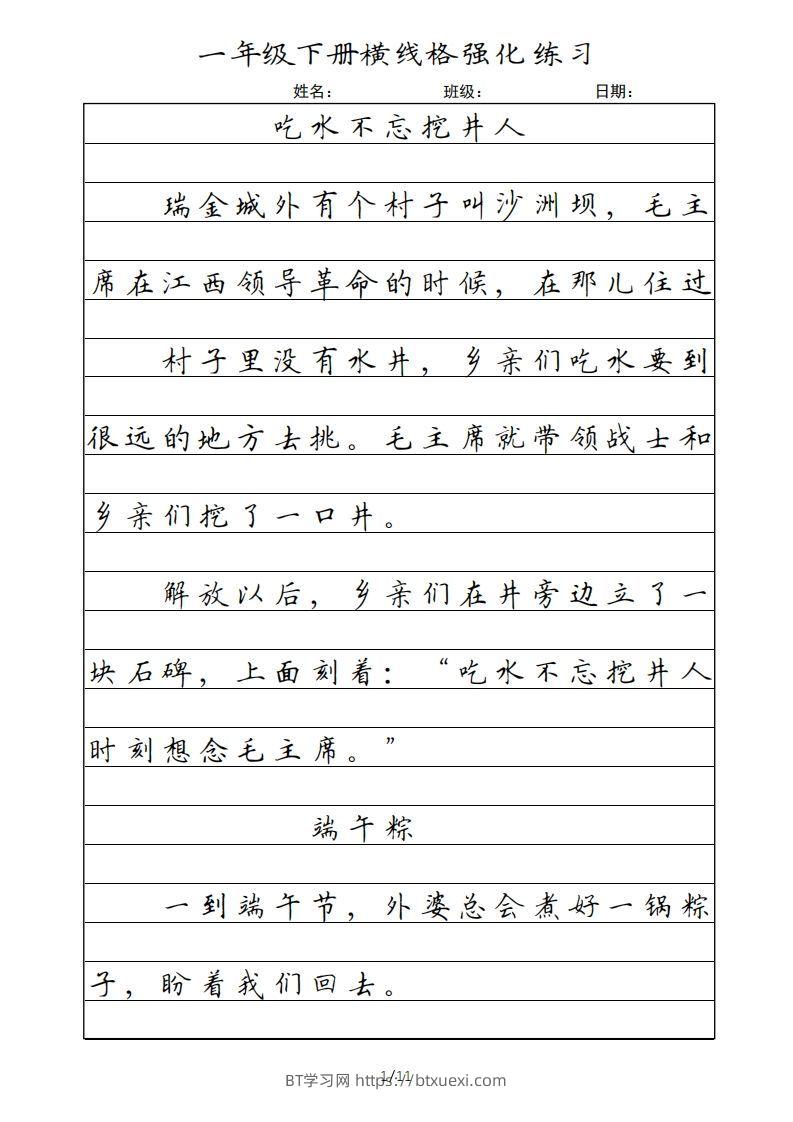 一年级下册横线格强化练习
姓名: 班级: 日期:
吃水不忘挖井人
瑞金城外有个村子叫沙洲坝，毛主
席在江西领导革命的时候，在那儿住过
村子里没有水井，乡亲们吃水要到
很远的地方去挑。毛主席就带领战士和
乡亲们挖了一口井。
解放以后，乡亲们在井旁边立了一
块石碑，上面刻着：“吃水不忘挖井人
时刻想念毛主席。”
端午粽
一到端午节，外婆总会煮好一锅粽
子，盼着我们回去。
1/11
BT学习网 https://btxuexi.com